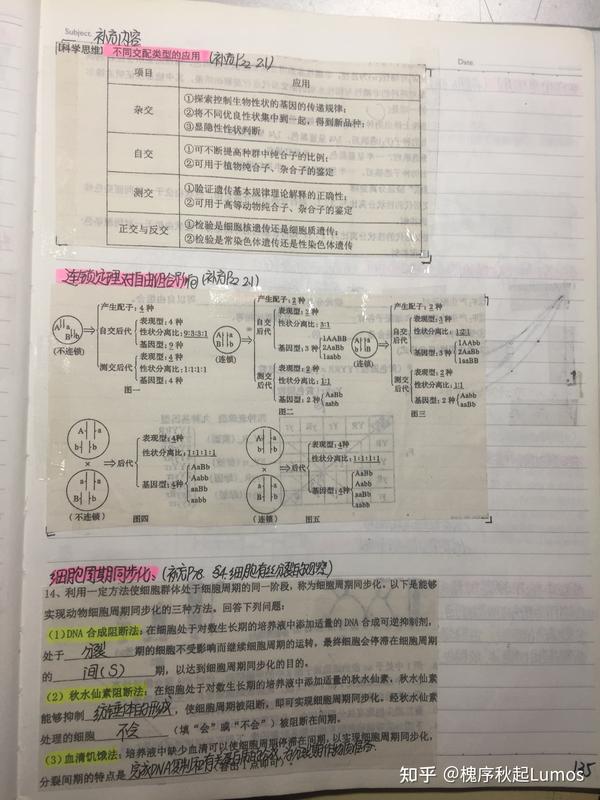 Subject. 补充内容
Date.
[科学思维] 不同交配类型的应用 (补充P22 2.1)
项目 应用
杂交 ①探索控制生物性状的基因的传递规律;
②将不同优良性状集中到一起,得到新品种;
③显隐性性状判断
自交 ①可不断提高种群中纯合子的比例;
②可用于植物纯合子、杂合子的鉴定
测交 ①验证遗传基本规律理论解释的正确性;
②可用于高等动物纯合子、杂合子的鉴定
正交与反交 ①检验是细胞核遗传还是细胞质遗传;
②检验是常染色体遗传还是性染色体遗传
连锁定理对自由组合影响(补充P22 2.1)
产生配子:4种
自交后代
表现型:4种
性状分离比:9:3:3:1
基因型:9种
测交后代
表现型:4种
性状分离比:1:1:1:1
基因型:4种
A a B b
(不连锁)
图一
产生配子:2种
自交后代
表现型:2种
性状分离比:3:1
基因型:3种 1AABB 2AaBb 1aabb
测交后代
表现型:2种
性状分离比:1:1
基因型:2种 AaBb aabb
A a B b
(连锁)
图二
产生配子:2种
自交后代
表现型:3种
性状分离比:1:2:1
基因型:3种 1AAbb 2AaBb 1aaBB
测交后代
表现型:2种
性状分离比:1:1
基因型:2种 Aabb aaBb
(连锁)
图三
A a b b
×
a a B b
(不连锁)
后代
表现型:4种
性状分离比:1:1:1:1
基因型:4种 AaBb Aabb aaBb aabb
图四
×
(连锁)
后代
表现型:4种
性状分离比:1:1:1:1
基因型:4种 AaBb Aabb aaBb aabb
图五
细胞周期同步化:(补充P78 §4.细胞有丝分裂的观察)
14、利用一定方法使细胞群体处于细胞周期的同一阶段,称为细胞周期同步化。以下是能够
实现动物细胞周期同步化的三种方法。回答下列问题:
(1)DNA合成阻断法:在细胞处于对数生长期的培养液中添加适量的DNA合成可逆抑制剂,
处于 分裂 期的细胞不受影响而继续细胞周期的运转,最终细胞会停滞在细胞周期
的 间(S) 期,以达到细胞周期同步化的目的。
(2)秋水仙素阻断法:在细胞处于对数生长期的培养液中添加适量的秋水仙素,秋水仙素
能够抑制 纺锤体的形成 ,使细胞周期被阻断,即可实现细胞周期同步化。经秋水仙素
处理的细胞 不会 (填“会”或“不会”)被阻断在间期。
(3)血清饥饿法:培养液中缺少血清可以使细胞周期停滞在间期,以实现细胞周期同步化,
分裂间期的特点是 完成DNA复制和有关蛋白质的合成,为分裂期作物质准备
135
知乎 @槐序秋起Lumos